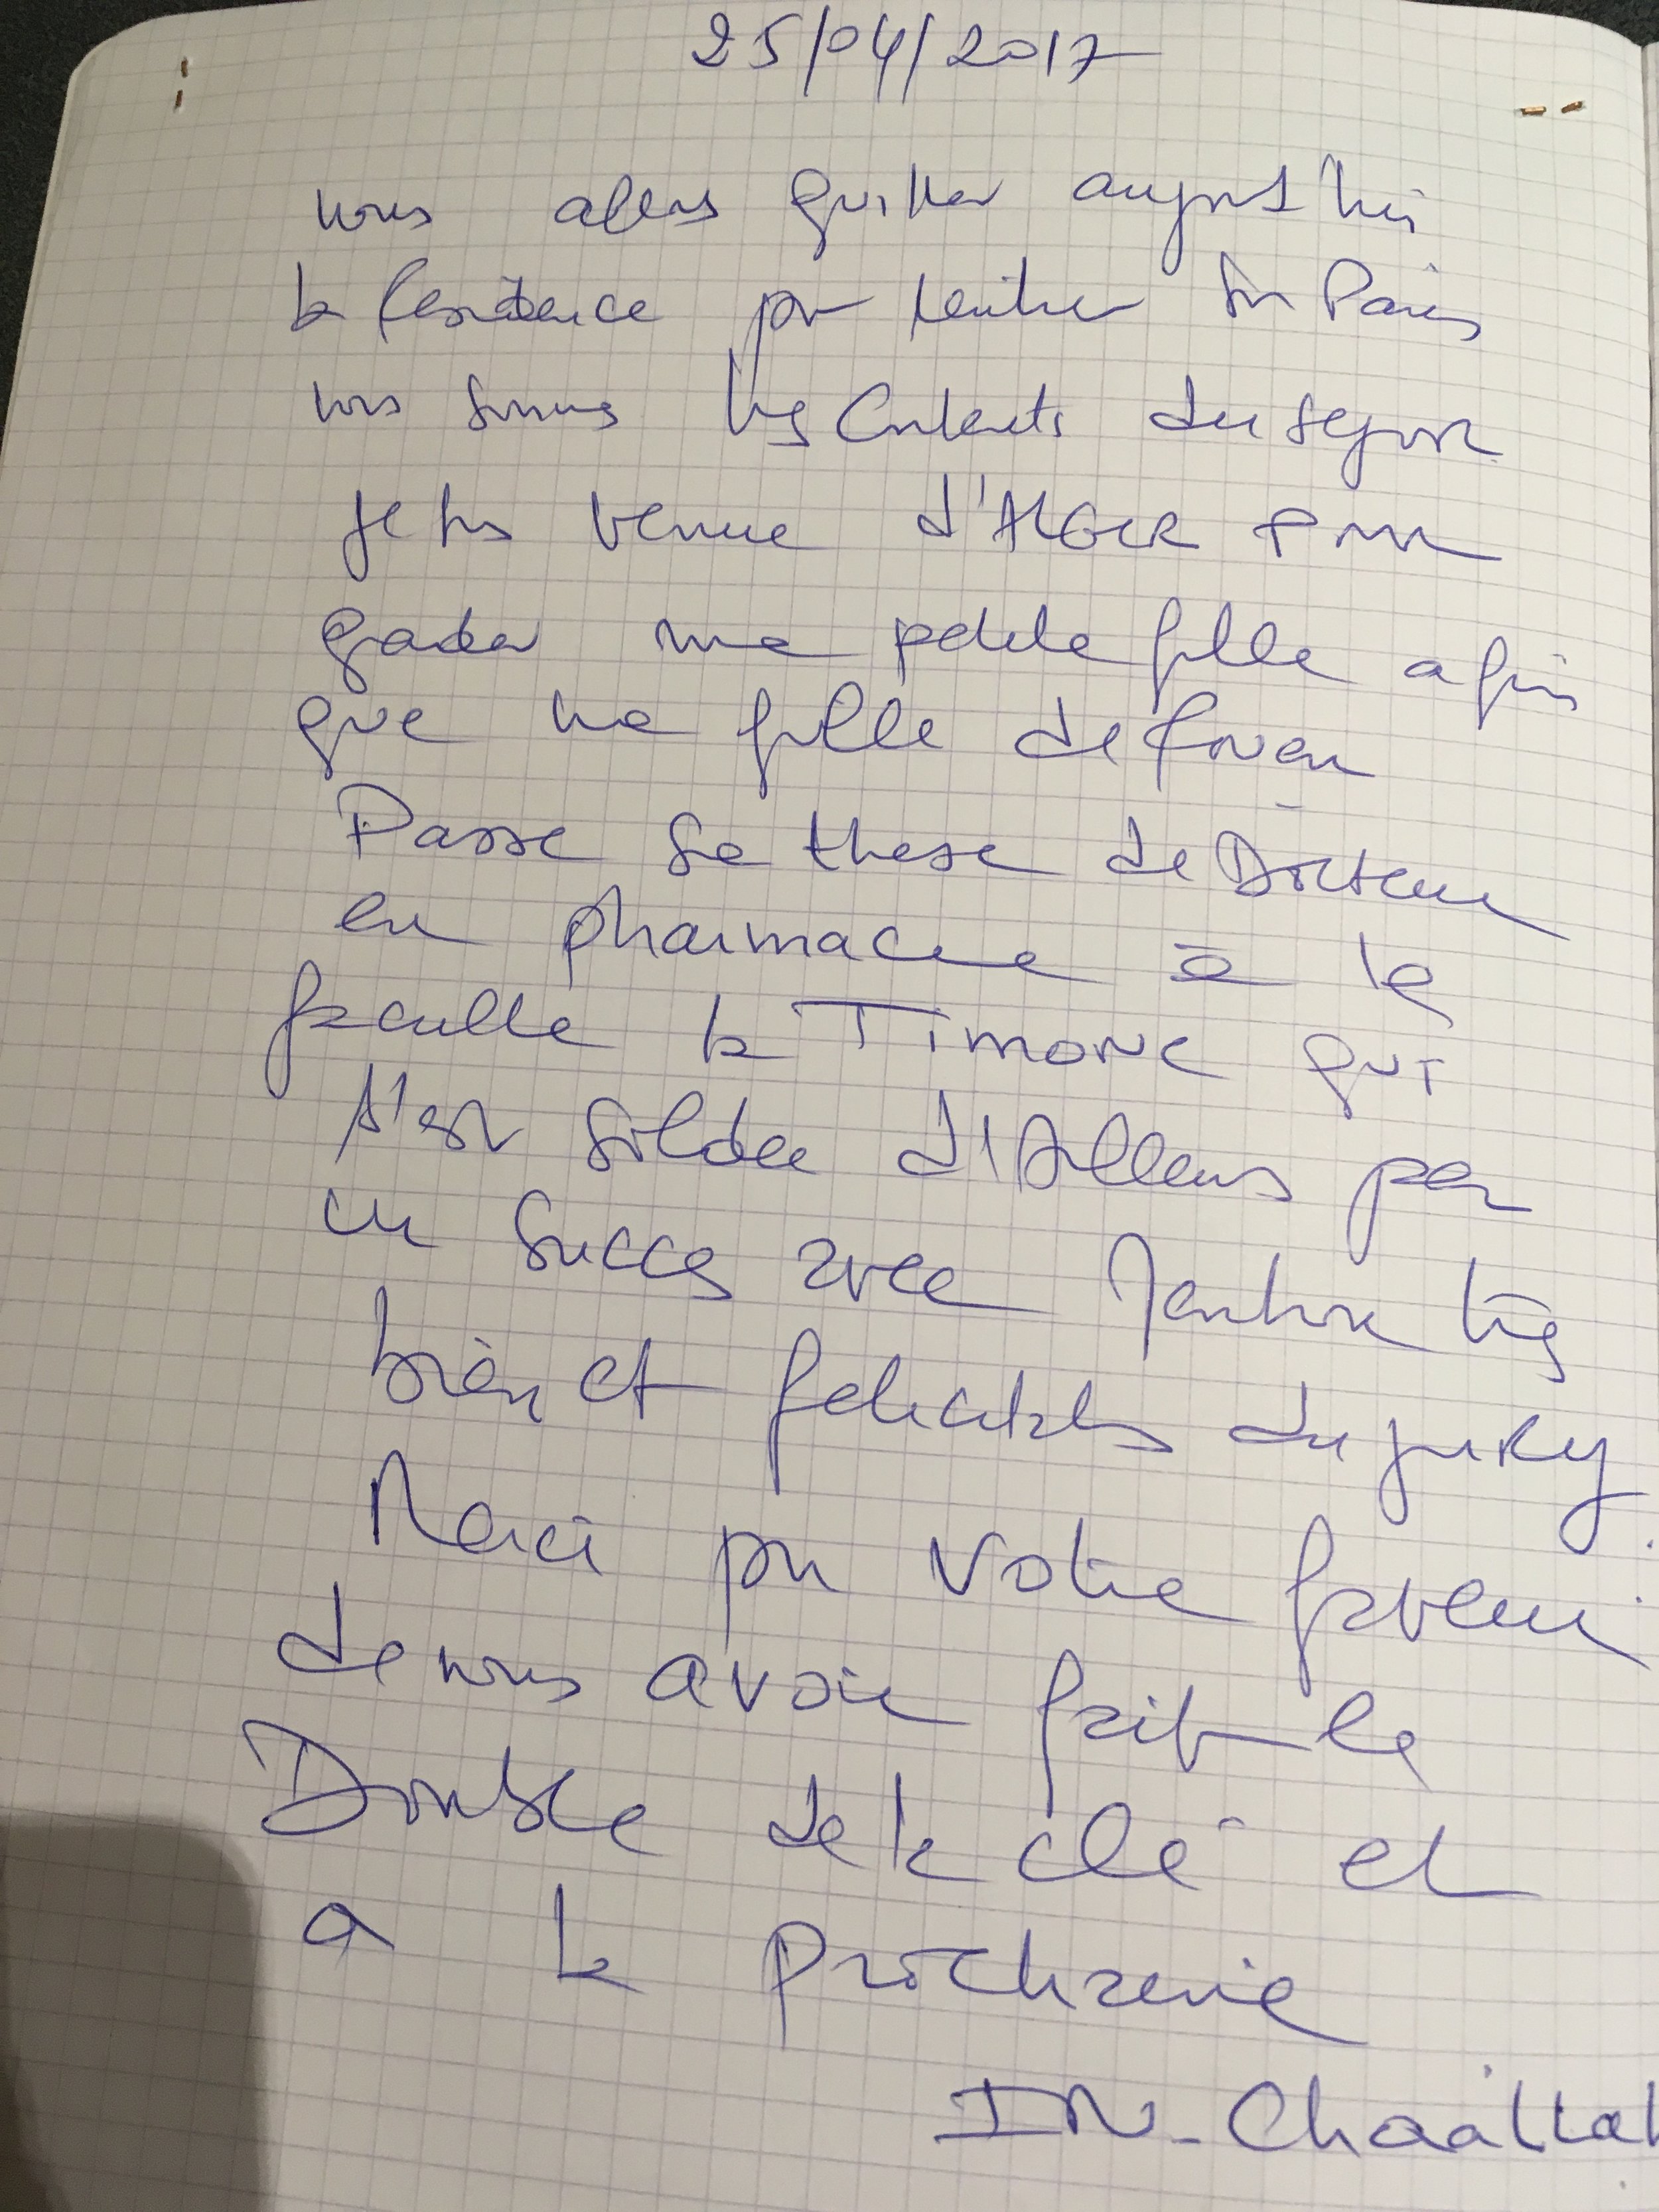 25/04/2017
nous allons quitter aujourd'hui
la Residence pour rentrer sur Paris
nous sommes très contents du sejour
Je suis venue d'ALGER pour
garder ma petite fille afin
que ma fille de Rouen
Passe sa these de Docteur
en pharmacie à la
faculte la TIMONE qui
s'est soldée d'Ailleurs par
un succes avec Mention très
bien et felicitations du jury.
Merci pour votre faveur
de nous avoir fait le
Double de la clé et
a la prochaine